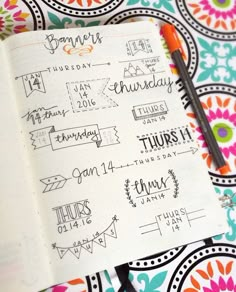 Banners
JAN
14
THURSDAY
14
JAN
14
2016
thursday
JAN 14 thurs
thursday
THURSDAY
THURS 14
Jan 14
THURSDAY
thurs
JAN 14
THURS
01.14.16
THURS
JAN
14
THURS
JAN 14